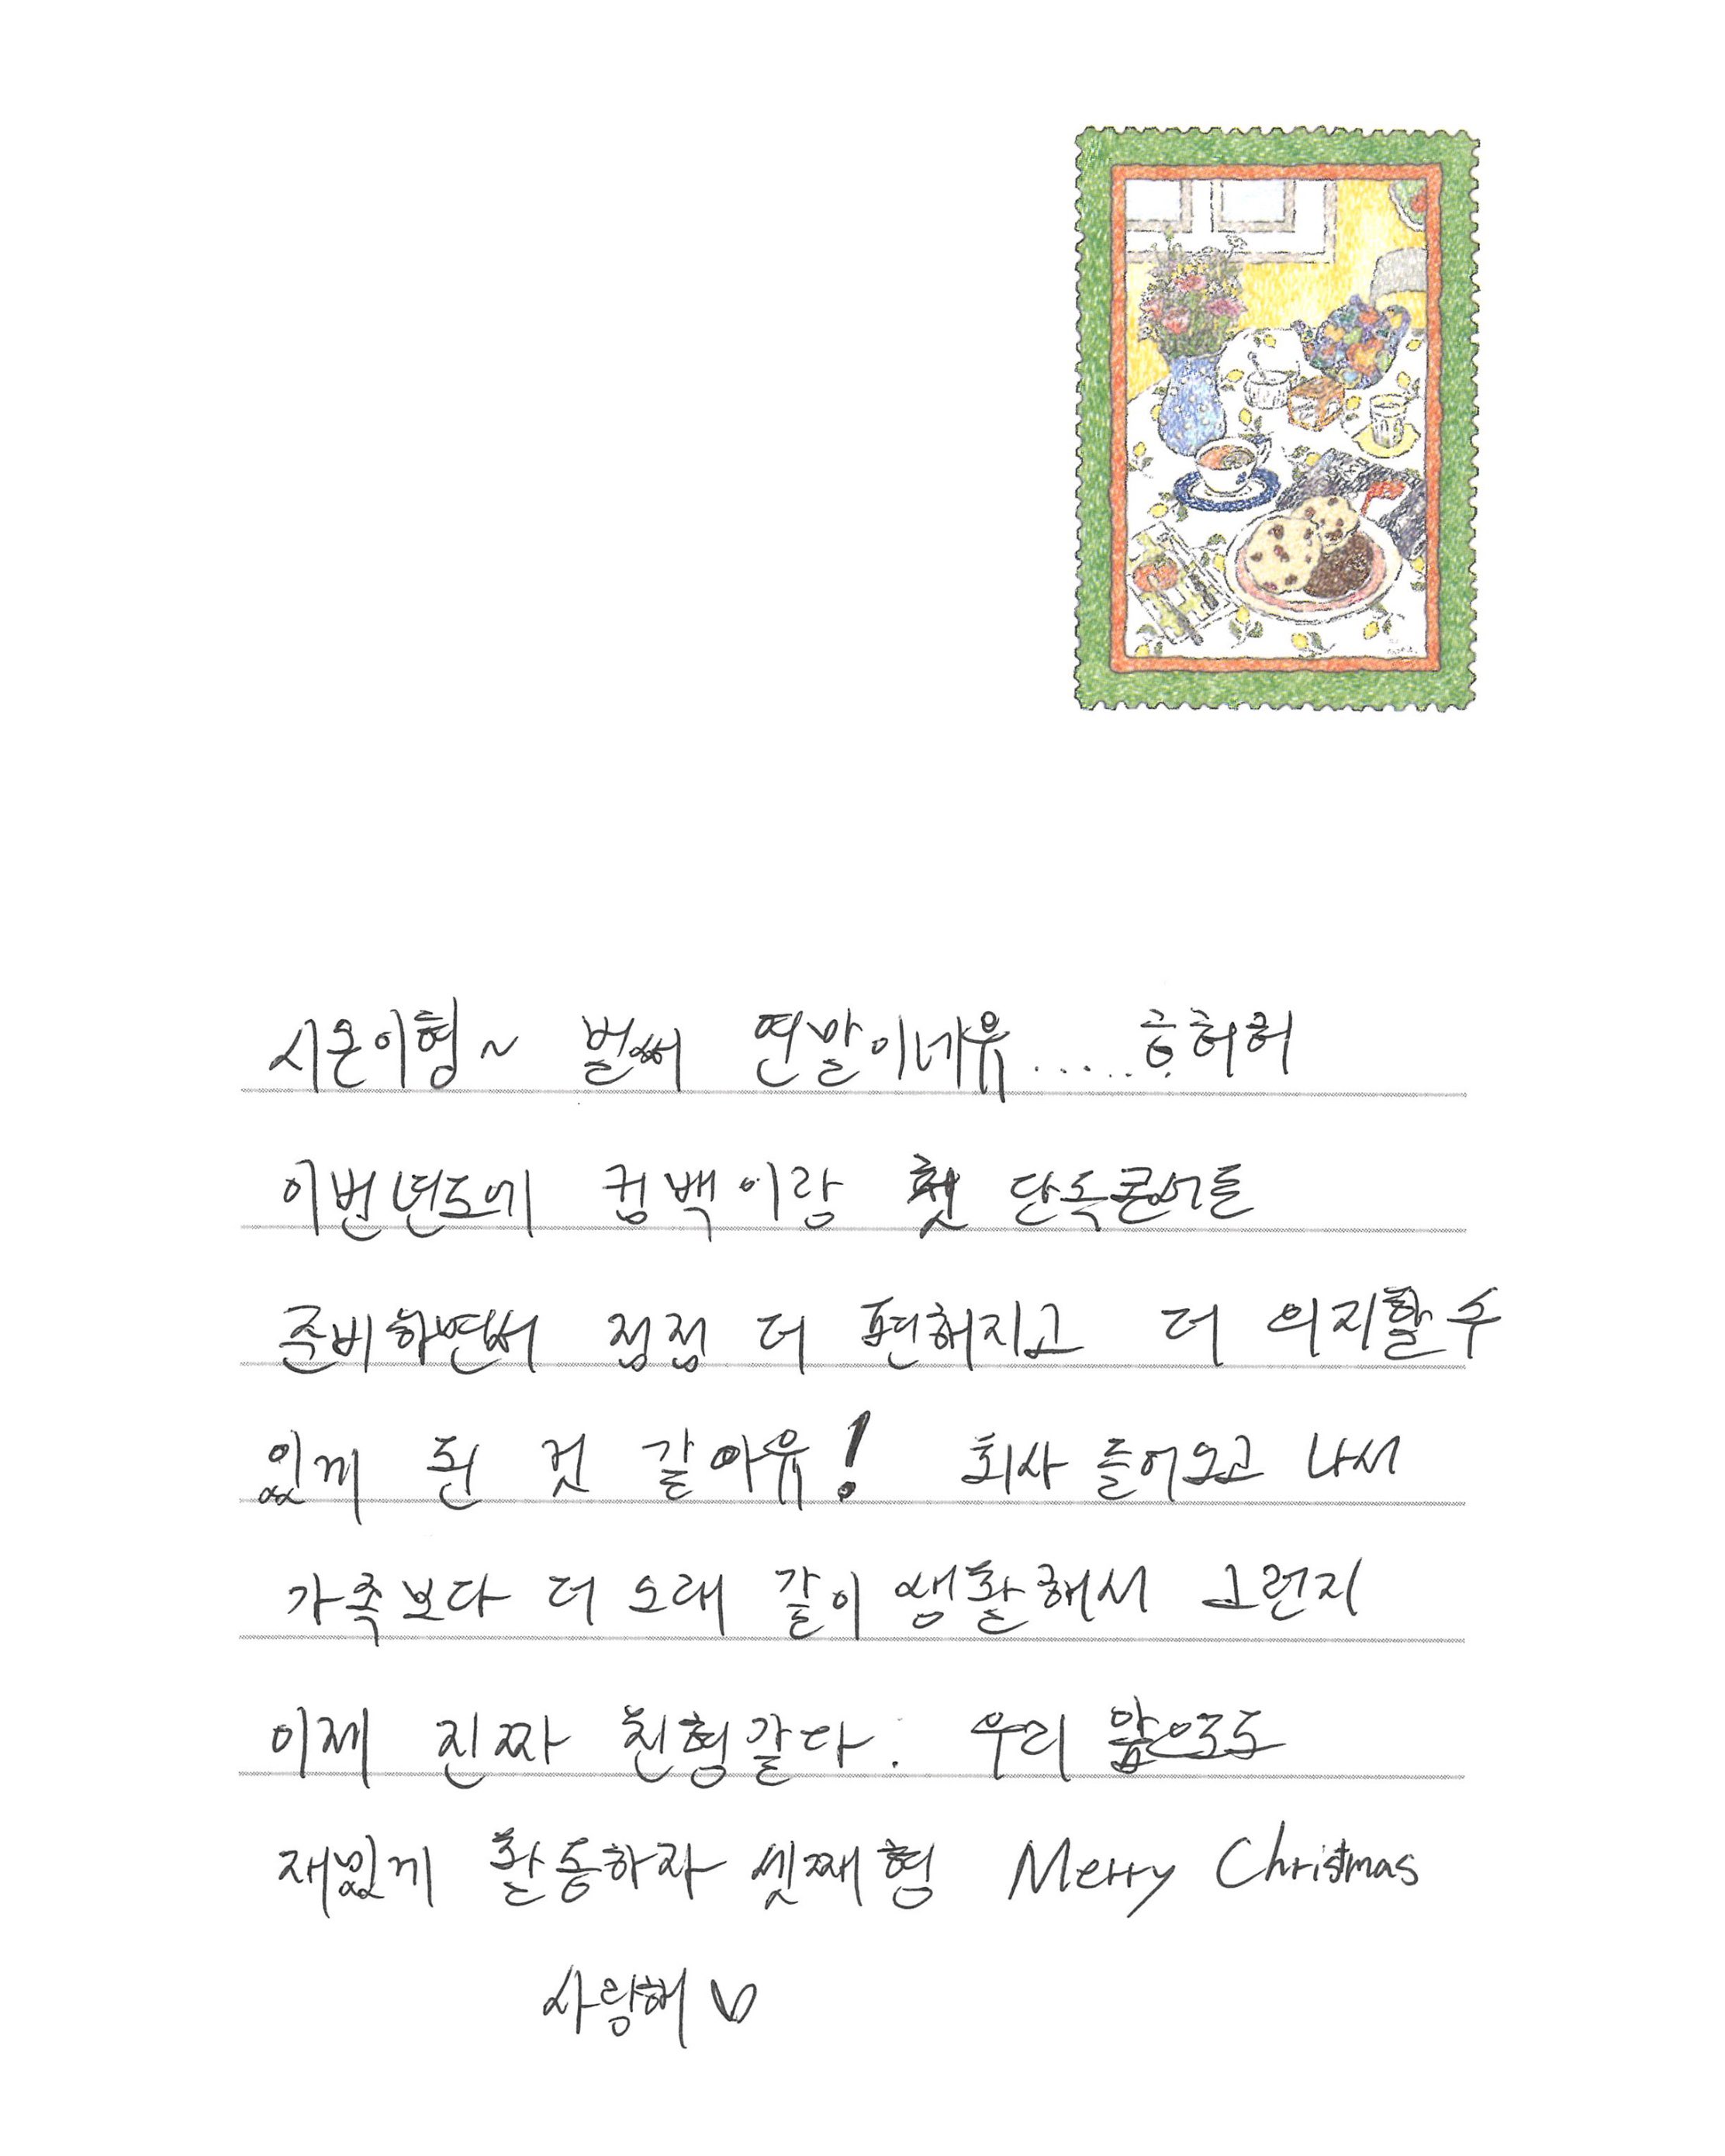 시온이형~ 벌써 연말이네유...... 흥허허
이번년도에 컴백이랑 첫 단독콘서트
준비하면서 점점 더 편해지고 더 의지할 수
있게 된 것 같아유! 회사 들어오고 나서
가족보다 더 오래 같이 생활해서 그런지
이제 진짜 친형같다. 우리 앞으로도
재밌게 활동하자 셋째형 Merry Christmas
사랑해 ♡